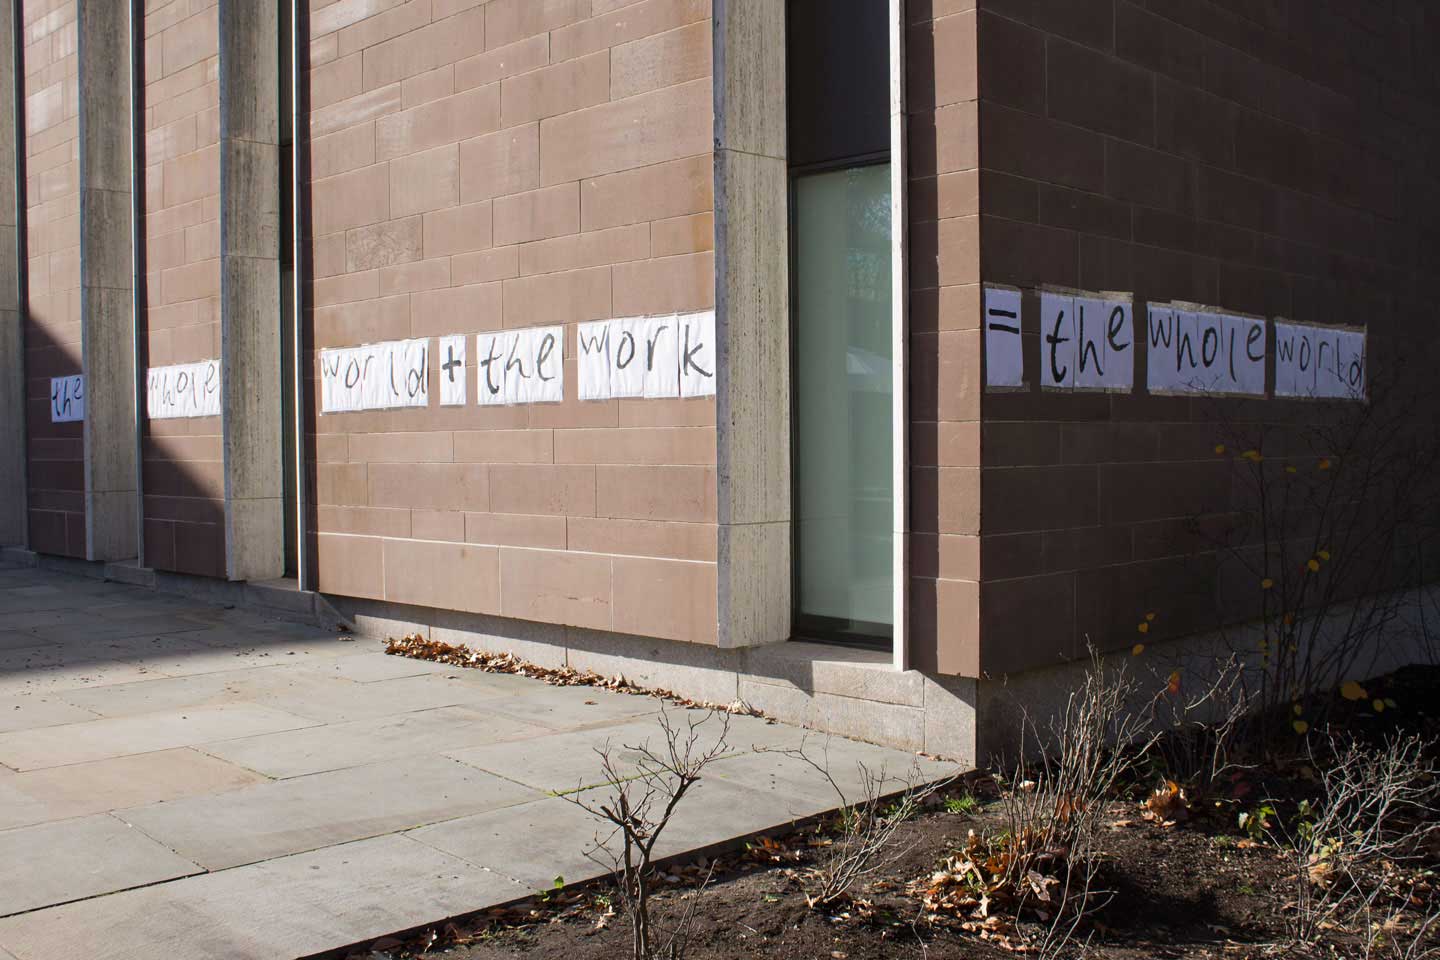 the whole world + the work = the whole world